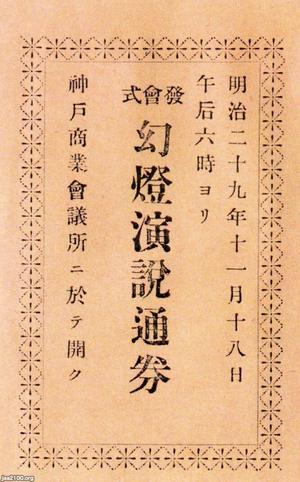 明治二十九年十一月十八日
午后六時ヨリ
發會式
幻燈演說通券
神戸商業會議所ニ於テ開ク
jaa2100.org